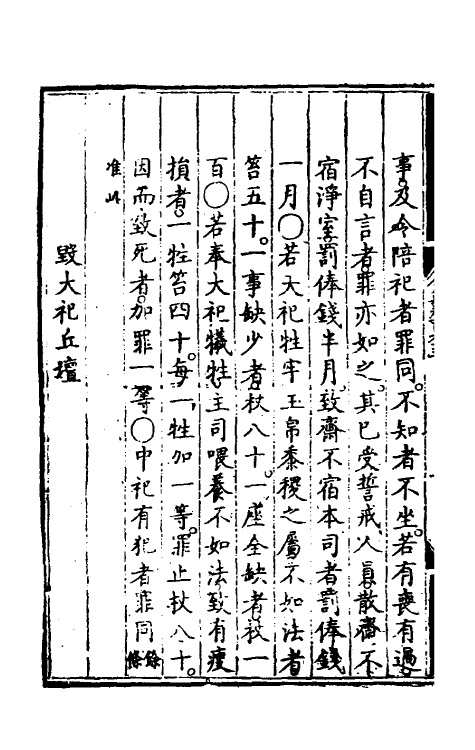 事及令陪祀者罪同不知者不坐若有喪有過
不自言者罪亦如之其已受誓戒人員散齋不
宿淨室罰俸錢半月致齋不宿本司者罰俸錢
一月〇若大祀牲牢玉帛黍稷之屬不如法者
笞五十一事缺少者杖八十一座全缺者杖一
百〇若奉大祀犧牲主司喂養不如法致有瘦
損者一牲笞四十每一牲加一等罪止杖八十
因而致死者加罪一等〇中祀有犯者罪同餘條
准此
毀大祀丘壇